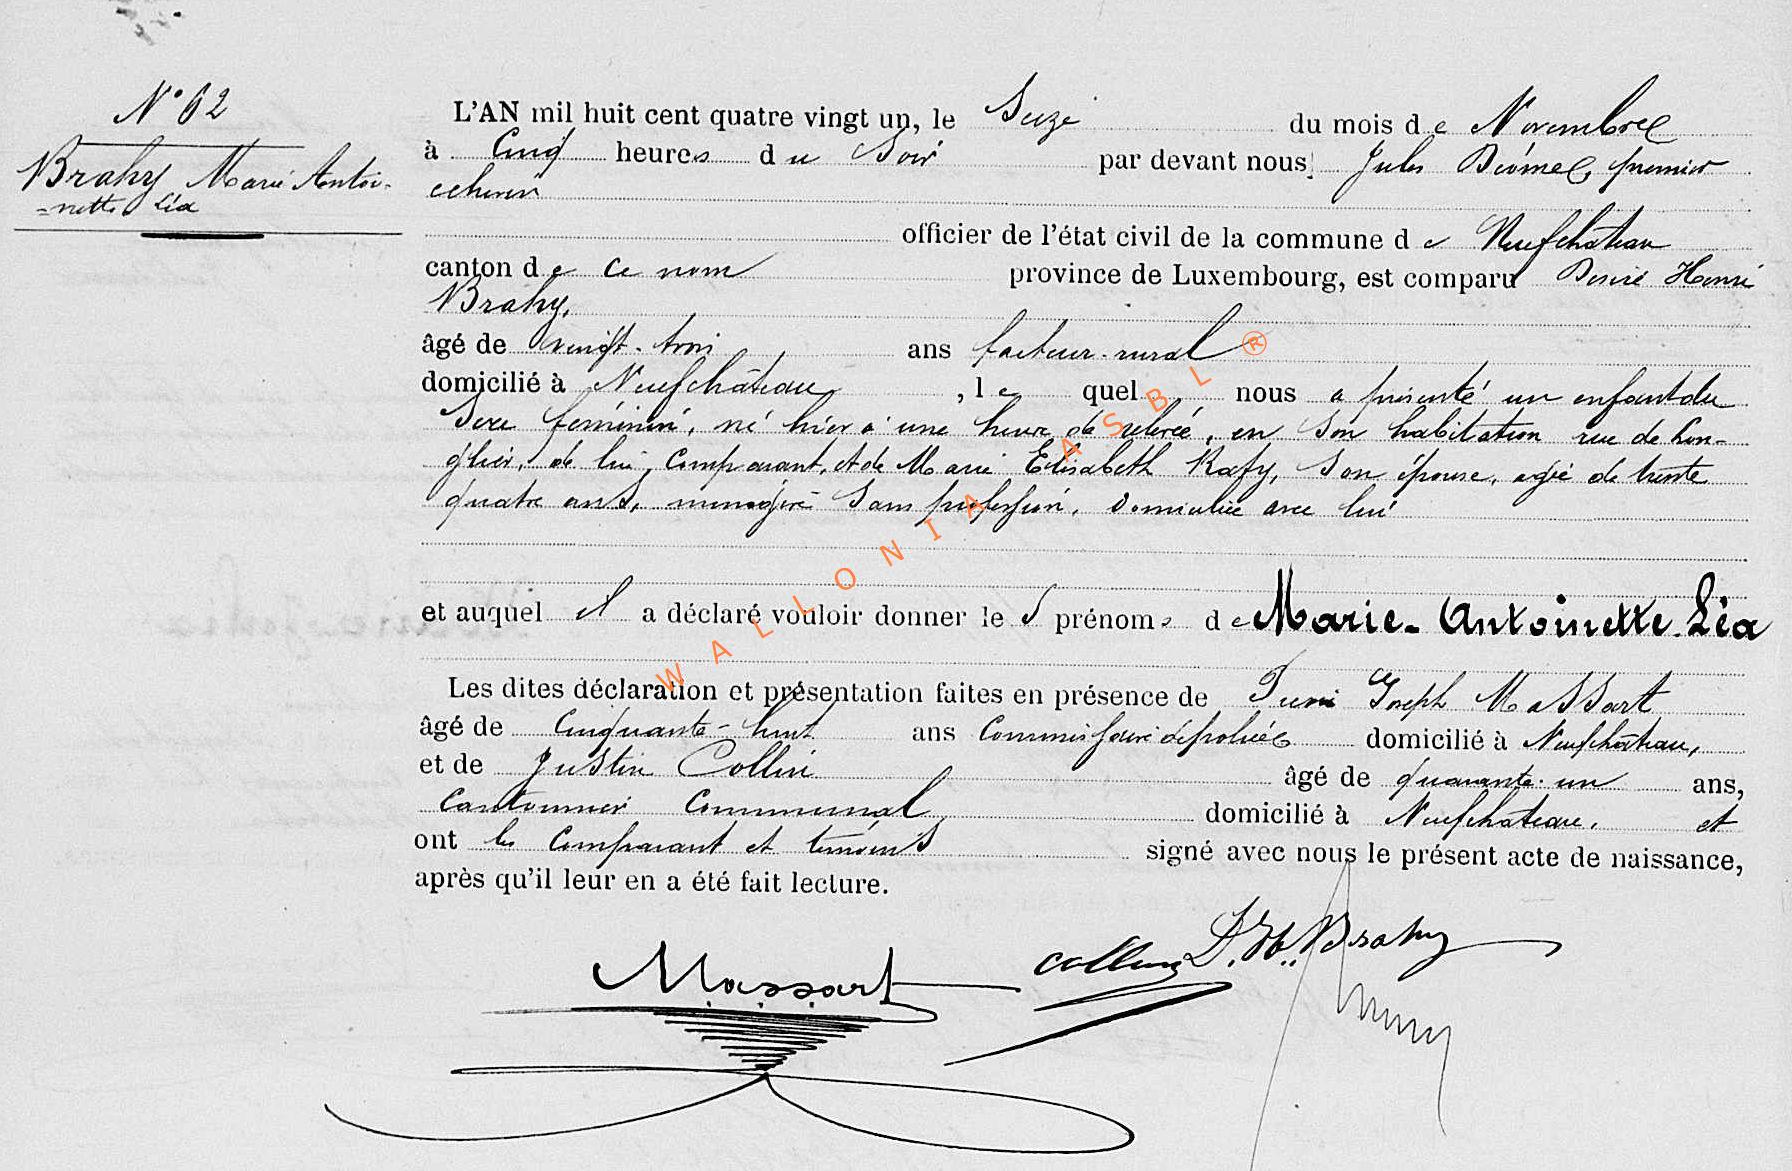 N° 62
Brahy Marie Antoi-
=nette Léa
L'AN mil huit cent quatre vingt un, le Seize du mois de Novembre
à Cinq heures du Soir par devant nous, Jules premier
echevin
officier de l'état civil de la commune de Neufchâteau
canton de ce nom province de Luxembourg, est comparu Désiré Henri
Brahy,
âgé de vingt-trois ans facteur-rural
domicilié à Neufchâteau, lequel nous a présenté un enfant du
Sexe féminin, né hier à une heure de relevée, en Son habitation rue de Lon-
glier, de lui, Comparant, et de Marie Elisabeth Rafy, Son épouse, agée de trente
quatre ans, menagère Sans profession, domiciliée avec lui
et auquel il a déclaré vouloir donner les prénoms de Marie-Antoinette-Léa
Les dites déclaration et présentation faites en présence de Joseph Massart
âgé de Cinquante-huit ans Commissaire de police domicilié à Neufchâteau,
et de Justin Collin âgé de quarante-un ans,
Cantonnier Communal domicilié à Neufchâteau, et
ont les Comparant et témoins signé avec nous le présent acte de naissance,
après qu'il leur en a été fait lecture.
Massart Collin D. H. Brahy
WALLONIA ASBL ®